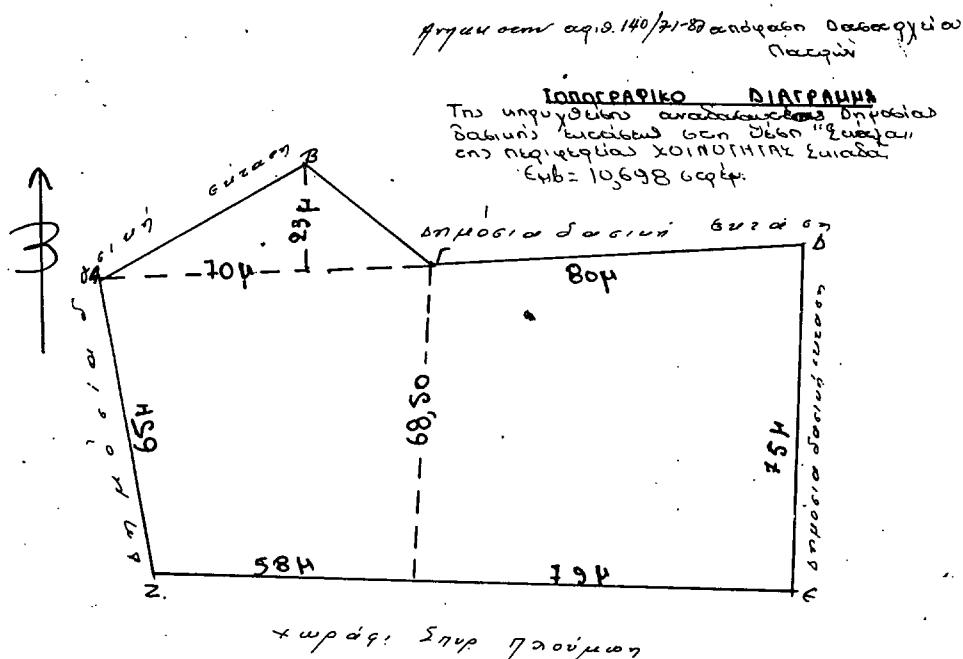 Ανήκει στην αριθ. 140/71-82 απόφαση Δασαρχείου
Πατρών
ΤΟΠΟΓΡΑΦΙΚΟ ΔΙΑΓΡΑΜΜΑ
Της κηρυχθείσης αναδασωτέας δημοσίας
δασικής εκτάσεως στη θέση "Σκάλα"
της περιφερείας ΚΟΙΝΟΤΗΤΑΣ Σκιαδά
Εμβ= 10,698 στρέμ.
Β
δημόσια δασική έκταση
23μ
Δημόσια δασική έκταση
Γ
Δ
Α
70μ
80μ
65μ
68,50
75μ
Δημόσια δασική έκταση
58μ
79μ
Ζ.
Ε
χωράφι Σπυρ Πλούμπη